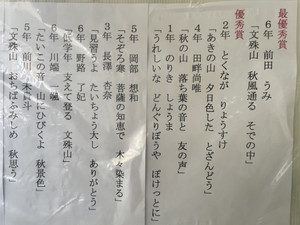 最優秀賞
6年 前田 うみ
「文殊山 秋風通る そでの中」
優秀賞
2年 とくなが りょうすけ
「あきの山 夕日色した とざんどう」
4年 田畔 尚唯
「秋の山 落ち葉の音と 友の声」
1年 のりき しょうま
「うれしいな どんぐりぼうや ぽけっとに」
5年 岡部 想和
「そぞろ寒 菩薩の知恵で 木々染まる」
3年 長澤 杏奈
「見習うよ たいちょう大し ありがとう」
6年 野路 了
「低学年 支えて登る 文殊山」
6年 川端 颯
「たいこの音 山にひびくよ 秋景色」
5年 前川 木
「文殊山 おちばふみしめ 秋思う」